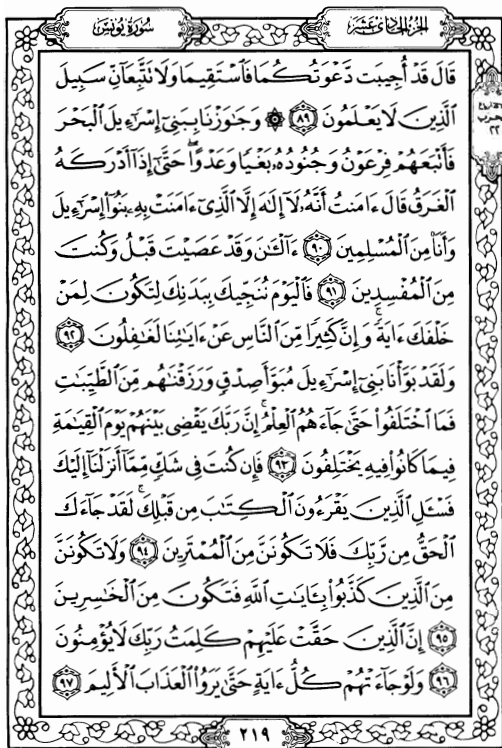 سُورَةُ يُونُسَ
الجُزءُ الحَادِي عَشَرَ
قَالَ قَدْ أُجِيبَت دَّعْوَتُكُمَا فَٱسْتَقِيمَا وَلَا تَتَّبِعَآنِّ سَبِيلَ
ٱلَّذِينَ لَا يَعْلَمُونَ ٨٩ ۞ وَجَٰوَزْنَا بِبَنِىٓ إِسْرَٰٓءِيلَ ٱلْبَحْرَ
فَأَتْبَعَهُمْ فِرْعَوْنُ وَجُنُودُهُۥ بَغْيًا وَعَدْوًا ۖ حَتَّىٰٓ إِذَآ أَدْرَكَهُ
ٱلْغَرَقُ قَالَ ءَامَنتُ أَنَّهُۥ لَآ إِلَٰهَ إِلَّا ٱلَّذِىٓ ءَامَنَتْ بِهِۦ بَنُوٓا۟ إِسْرَٰٓءِيلَ
وَأَنَا۠ مِنَ ٱلْمُسْلِمِينَ ٩٠ ءَآلْـَٰٔنَ وَقَدْ عَصَيْتَ قَبْلُ وَكُنتَ
مِنَ ٱلْمُفْسِدِينَ ٩١ فَٱلْيَوْمَ نُنَجِّيكَ بِبَدَنِكَ لِتَكُونَ لِمَنْ
خَلْفَكَ ءَايَةً ۚ وَإِنَّ كَثِيرًا مِّنَ ٱلنَّاسِ عَنْ ءَايَٰتِنَا لَغَٰفِلُونَ ٩٢
وَلَقَدْ بَوَّأْنَا بَنِىٓ إِسْرَٰٓءِيلَ مُبَوَّأَ صِدْقٍ وَرَزَقْنَٰهُم مِّنَ ٱلطَّيِّبَٰتِ
فَمَا ٱخْتَلَفُوا۟ حَتَّىٰ جَآءَهُمُ ٱلْعِلْمُ ۚ إِنَّ رَبَّكَ يَقْضِى بَيْنَهُمْ يَوْمَ ٱلْقِيَٰمَةِ
فِيمَا كَانُوا۟ فِيهِ يَخْتَلِفُونَ ٩٣ فَإِن كُنتَ فِى شَكٍّ مِّمَّآ أَنزَلْنَآ إِلَيْكَ
فَسْـَٔلِ ٱلَّذِينَ يَقْرَءُونَ ٱلْكِتَٰبَ مِن قَبْلِكَ ۚ لَقَدْ جَآءَكَ
ٱلْحَقُّ مِن رَّبِّكَ فَلَا تَكُونَنَّ مِنَ ٱلْمُمْتَرِينَ ٩٤ وَلَا تَكُونَنَّ
مِنَ ٱلَّذِينَ كَذَّبُوا۟ بِـَٔايَٰتِ ٱللَّهِ فَتَكُونَ مِنَ ٱلْخَٰسِرِينَ
٩٥ إِنَّ ٱلَّذِينَ حَقَّتْ عَلَيْهِمْ كَلِمَتُ رَبِّكَ لَا يُؤْمِنُونَ
٩٦ وَلَوْ جَآءَتْهُمْ كُلُّ ءَايَةٍ حَتَّىٰ يَرَوُا۟ ٱلْعَذَابَ ٱلْأَلِيمَ ٩٧
٢١٩